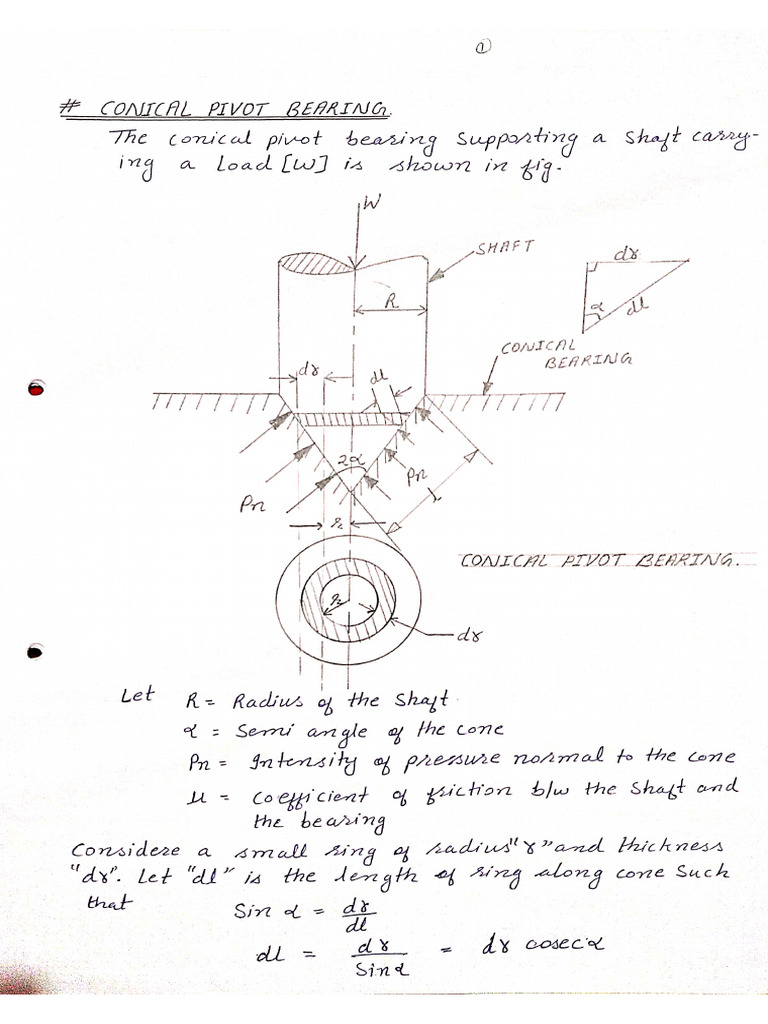 ①
# CONICAL PIVOT BEARING.
The conical pivot bearing supporting a shaft carry-
ing a Load [W] is shown in fig.
W
SHAFT
dr
R
α
dl
CONICAL
BEARING
dr
dl
2α
Pn
Pn
l
r
CONICAL PIVOT BEARING.
r
dr
Let R = Radius of the Shaft.
α = Semi angle of the cone
Pn = Intensity of pressure normal to the cone
μ = coefficient of friction b/w the Shaft and
the bearing
Considere a small ring of radius "r" and thickness
"dr". Let "dl" is the length of ring along cone Such
that Sin α = dr/dl
dl = dr/Sinα = dr cosecα